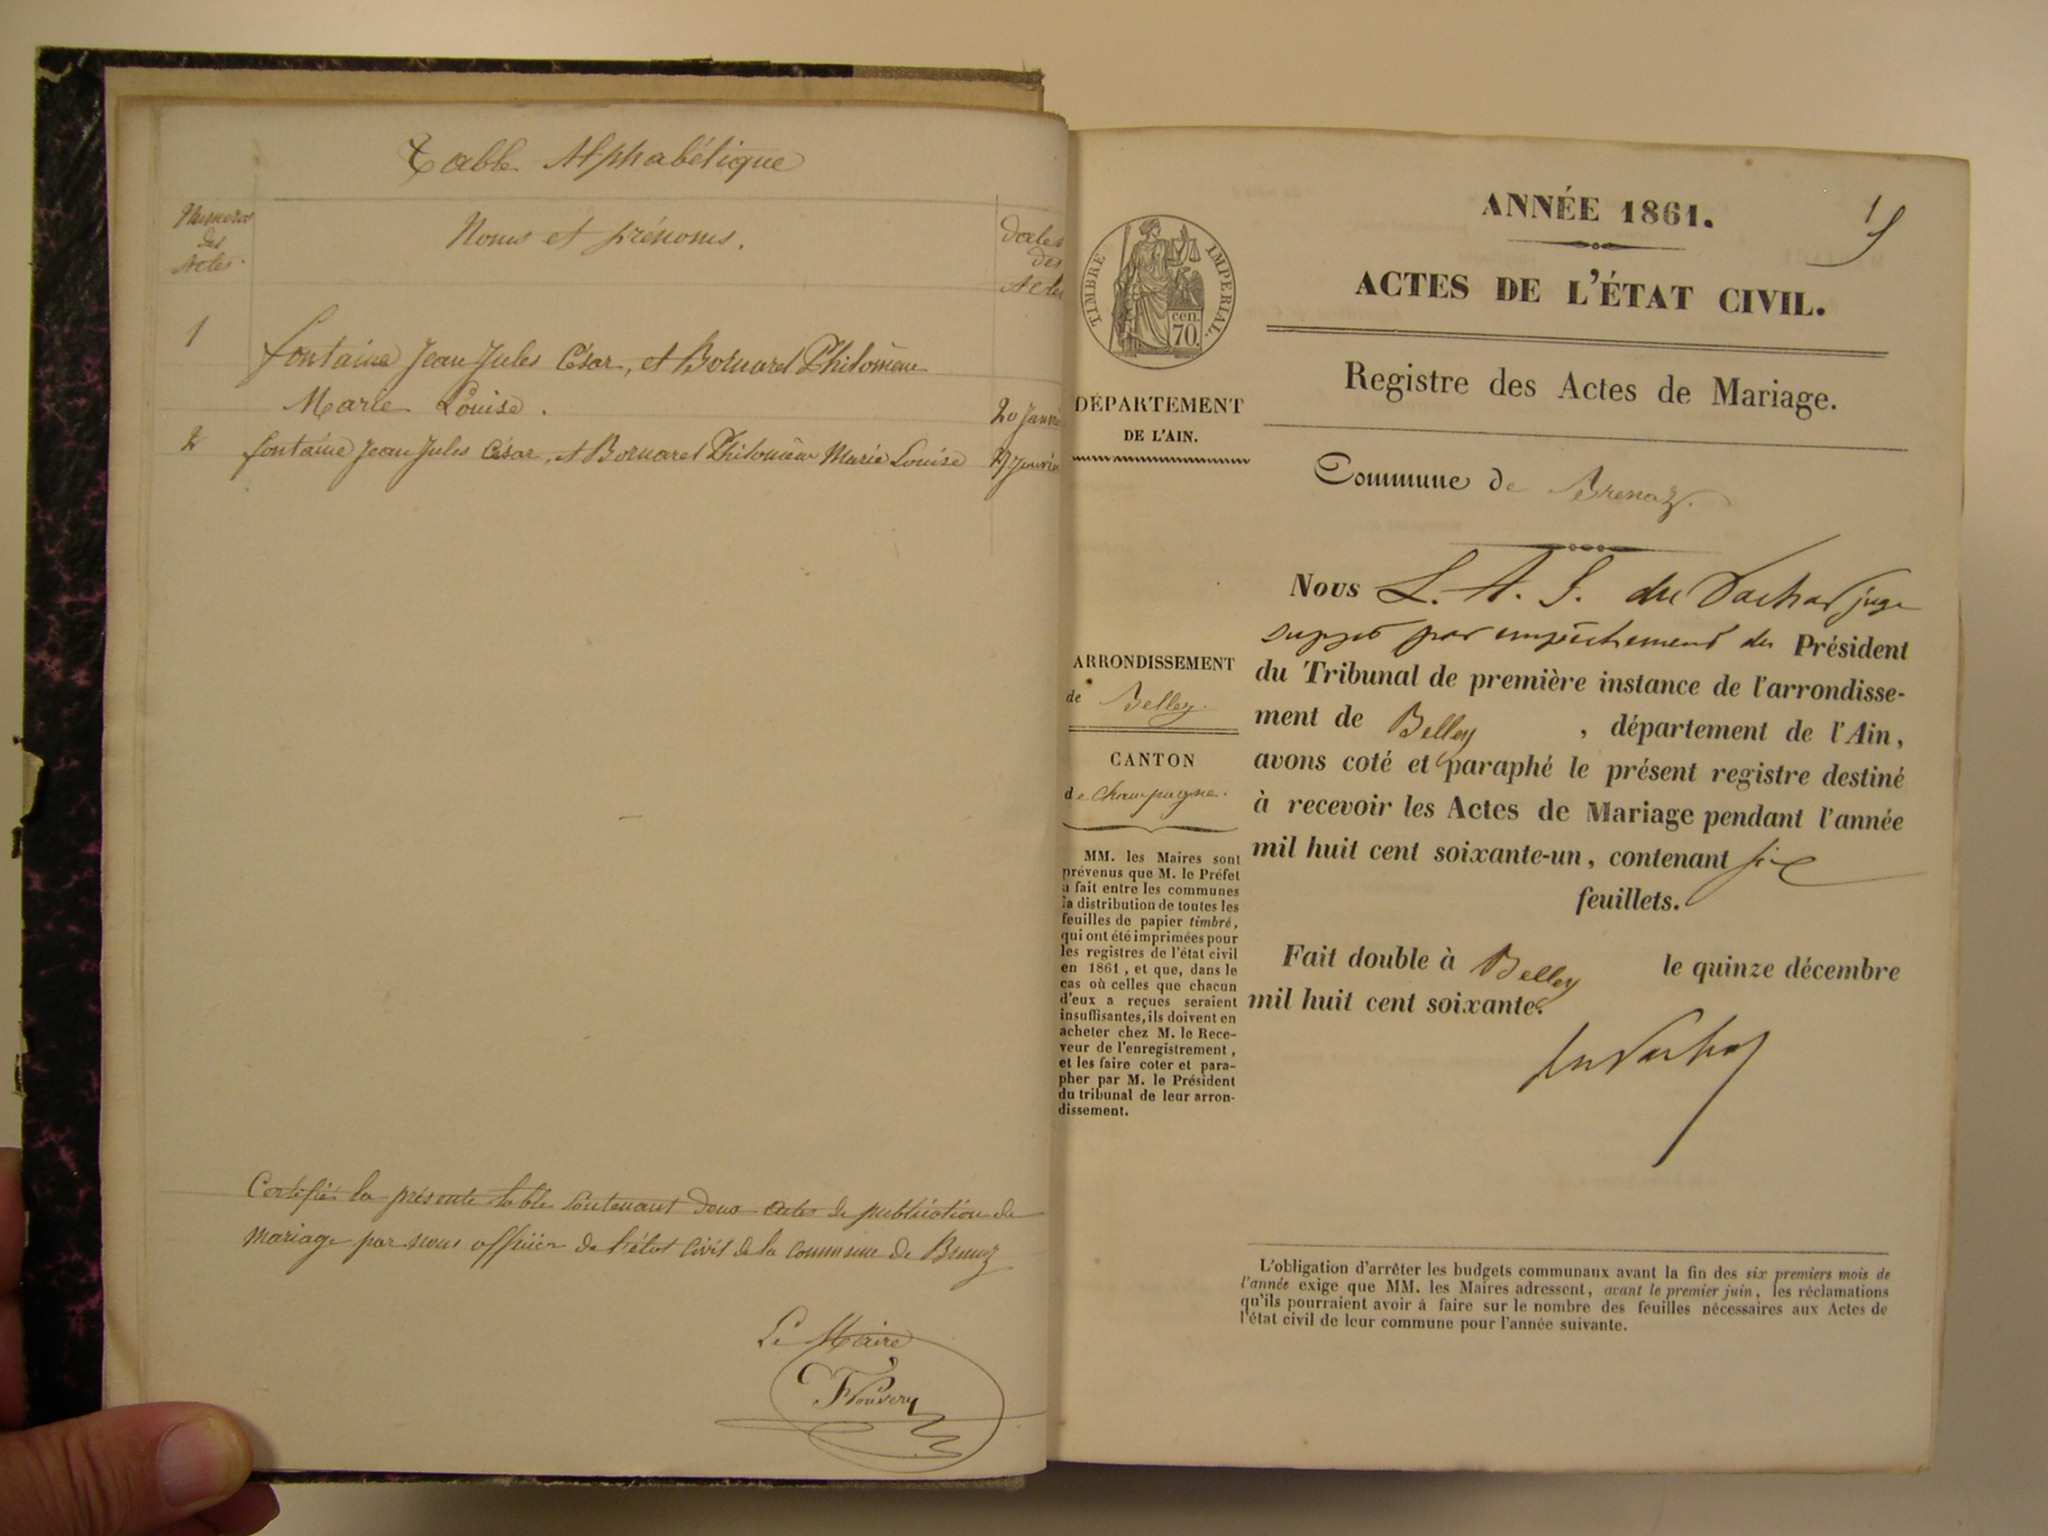 Table Alphabétique
Numeros
des
Actes
Noms et prénoms.
dates
des
Actes
1
fontaine Jean Jules César, et Bornarel Philomène
Marie Louise.
20 Janvi
2
fontaine Jean Jules César, et Bornarel Philomène Marie Louise
27 Janvier
Certifié la présente table contenant deux actes de publication de
Mariage par nous officier de l'état civil de la commune de Brenaz
Le Maire
ANNÉE 1861.
ACTES DE L'ÉTAT CIVIL.
Registre des Actes de Mariage.
Commune de Brenaz.
TIMBRE IMPERIAL.
70 cen.
DÉPARTEMENT
DE L'AIN.
ARRONDISSEMENT
de Belley.
CANTON
de Champagne.
MM. les Maires sont
prévenus que M. le Préfet
a fait entre les communes
la distribution de toutes les
feuilles de papier timbré,
qui ont été imprimées pour
les registres de l'état civil
en 1861, et que, dans le
cas où celles que chacun
d'eux a reçues seraient
insuffisantes, ils doivent en
acheter chez M. le Rece-
veur de l'enregistrement,
et les faire coter et para-
pher par M. le Président
du tribunal de leur arron-
dissement.
Nous L. A. S. du Vachat juge
suppt par empêchement du Président
du Tribunal de première instance de l'arrondisse-
ment de Belley, département de l'Ain,
avons coté et paraphé le présent registre destiné
à recevoir les Actes de Mariage pendant l'année
mil huit cent soixante-un, contenant six
feuillets.
Fait double à Belley le quinze décembre
mil huit cent soixante.
du Vachat
L'obligation d'arrêter les budgets communaux avant la fin des six premiers mois de
l'année exige que MM. les Maires adressent, avant le premier juin, les réclamations
qu'ils pourraient avoir à faire sur le nombre des feuilles nécessaires aux Actes de
l'état civil de leur commune pour l'année suivante.